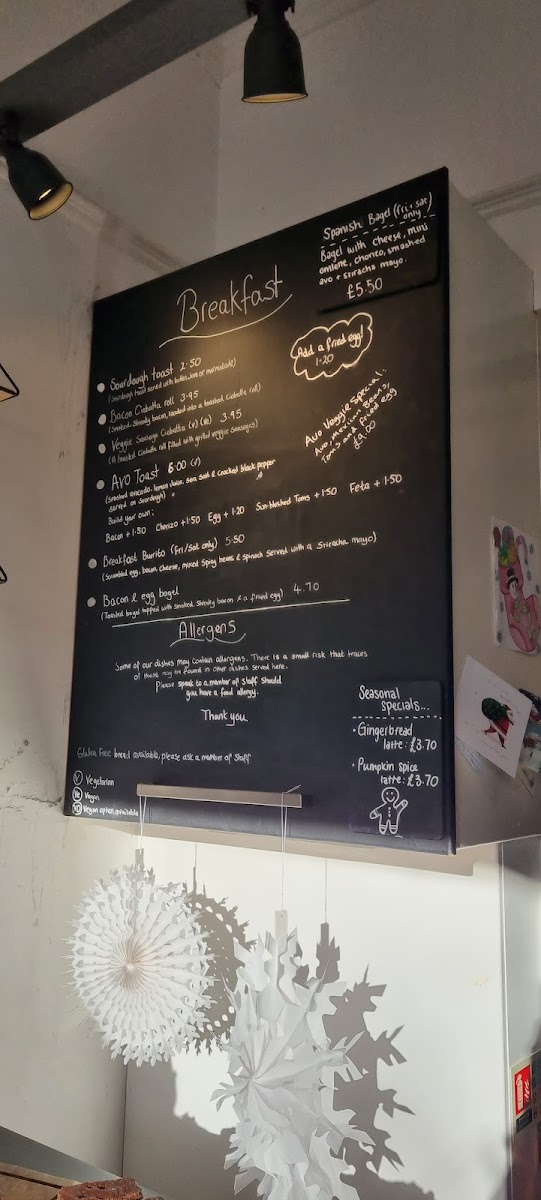 Breakfast
Spanish Bagel (fri + sat
only)
Bagel with cheese, mini
omlette, chorizo, smashed
avo + sriracha mayo.
£5.50
Add a fried egg!
1.20
Sourdough toast 2.50
(Sourdough toast served with butter, jam or marmalade)
Bacon Ciabatta roll 3.95
(Smoked Streaky bacon, loaded into a toasted Ciabatta roll)
Veggie Sausage Ciabatta (v) 3.95
(A toasted Ciabatta roll filled with grilled veggie Sausages)
Avo Veggie Special.
Avo, Mexican Beans,
Toms and fried egg
£9.00
AVO TOAST 6.00 (v)
(Smashed avocado, lemon Juice, sea salt & Cracked black pepper
served on Sourdough)
Build your own:
Bacon + 1.50 Chorizo + 1.50 Egg + 1.20 Sun-blushed Toms + 1.50 Feta + 1.50
Breakfast Burrito (Fri/Sat only) 5.50
(Scrambled egg, bacon, cheese, mixed Spicy beans & spinach Served with a Sriracha mayo)
Bacon & egg bagel 4.70
(Toasted bagel topped with smoked Streaky bacon & a fried egg)
Allergens
Some of our dishes may contain allergens. There is a small risk that traces
of these may be found in other dishes served here.
Please speak to a member of Staff Should
you have a food allergy.
Thank you
Gluten Free bread available, please ask a member of Staff
V Vegetarian
Ve Vegan
VO Vegan option available
Seasonal
specials...
• Gingerbread
latte: £3.70
• Pumpkin spice
latte: £3.70